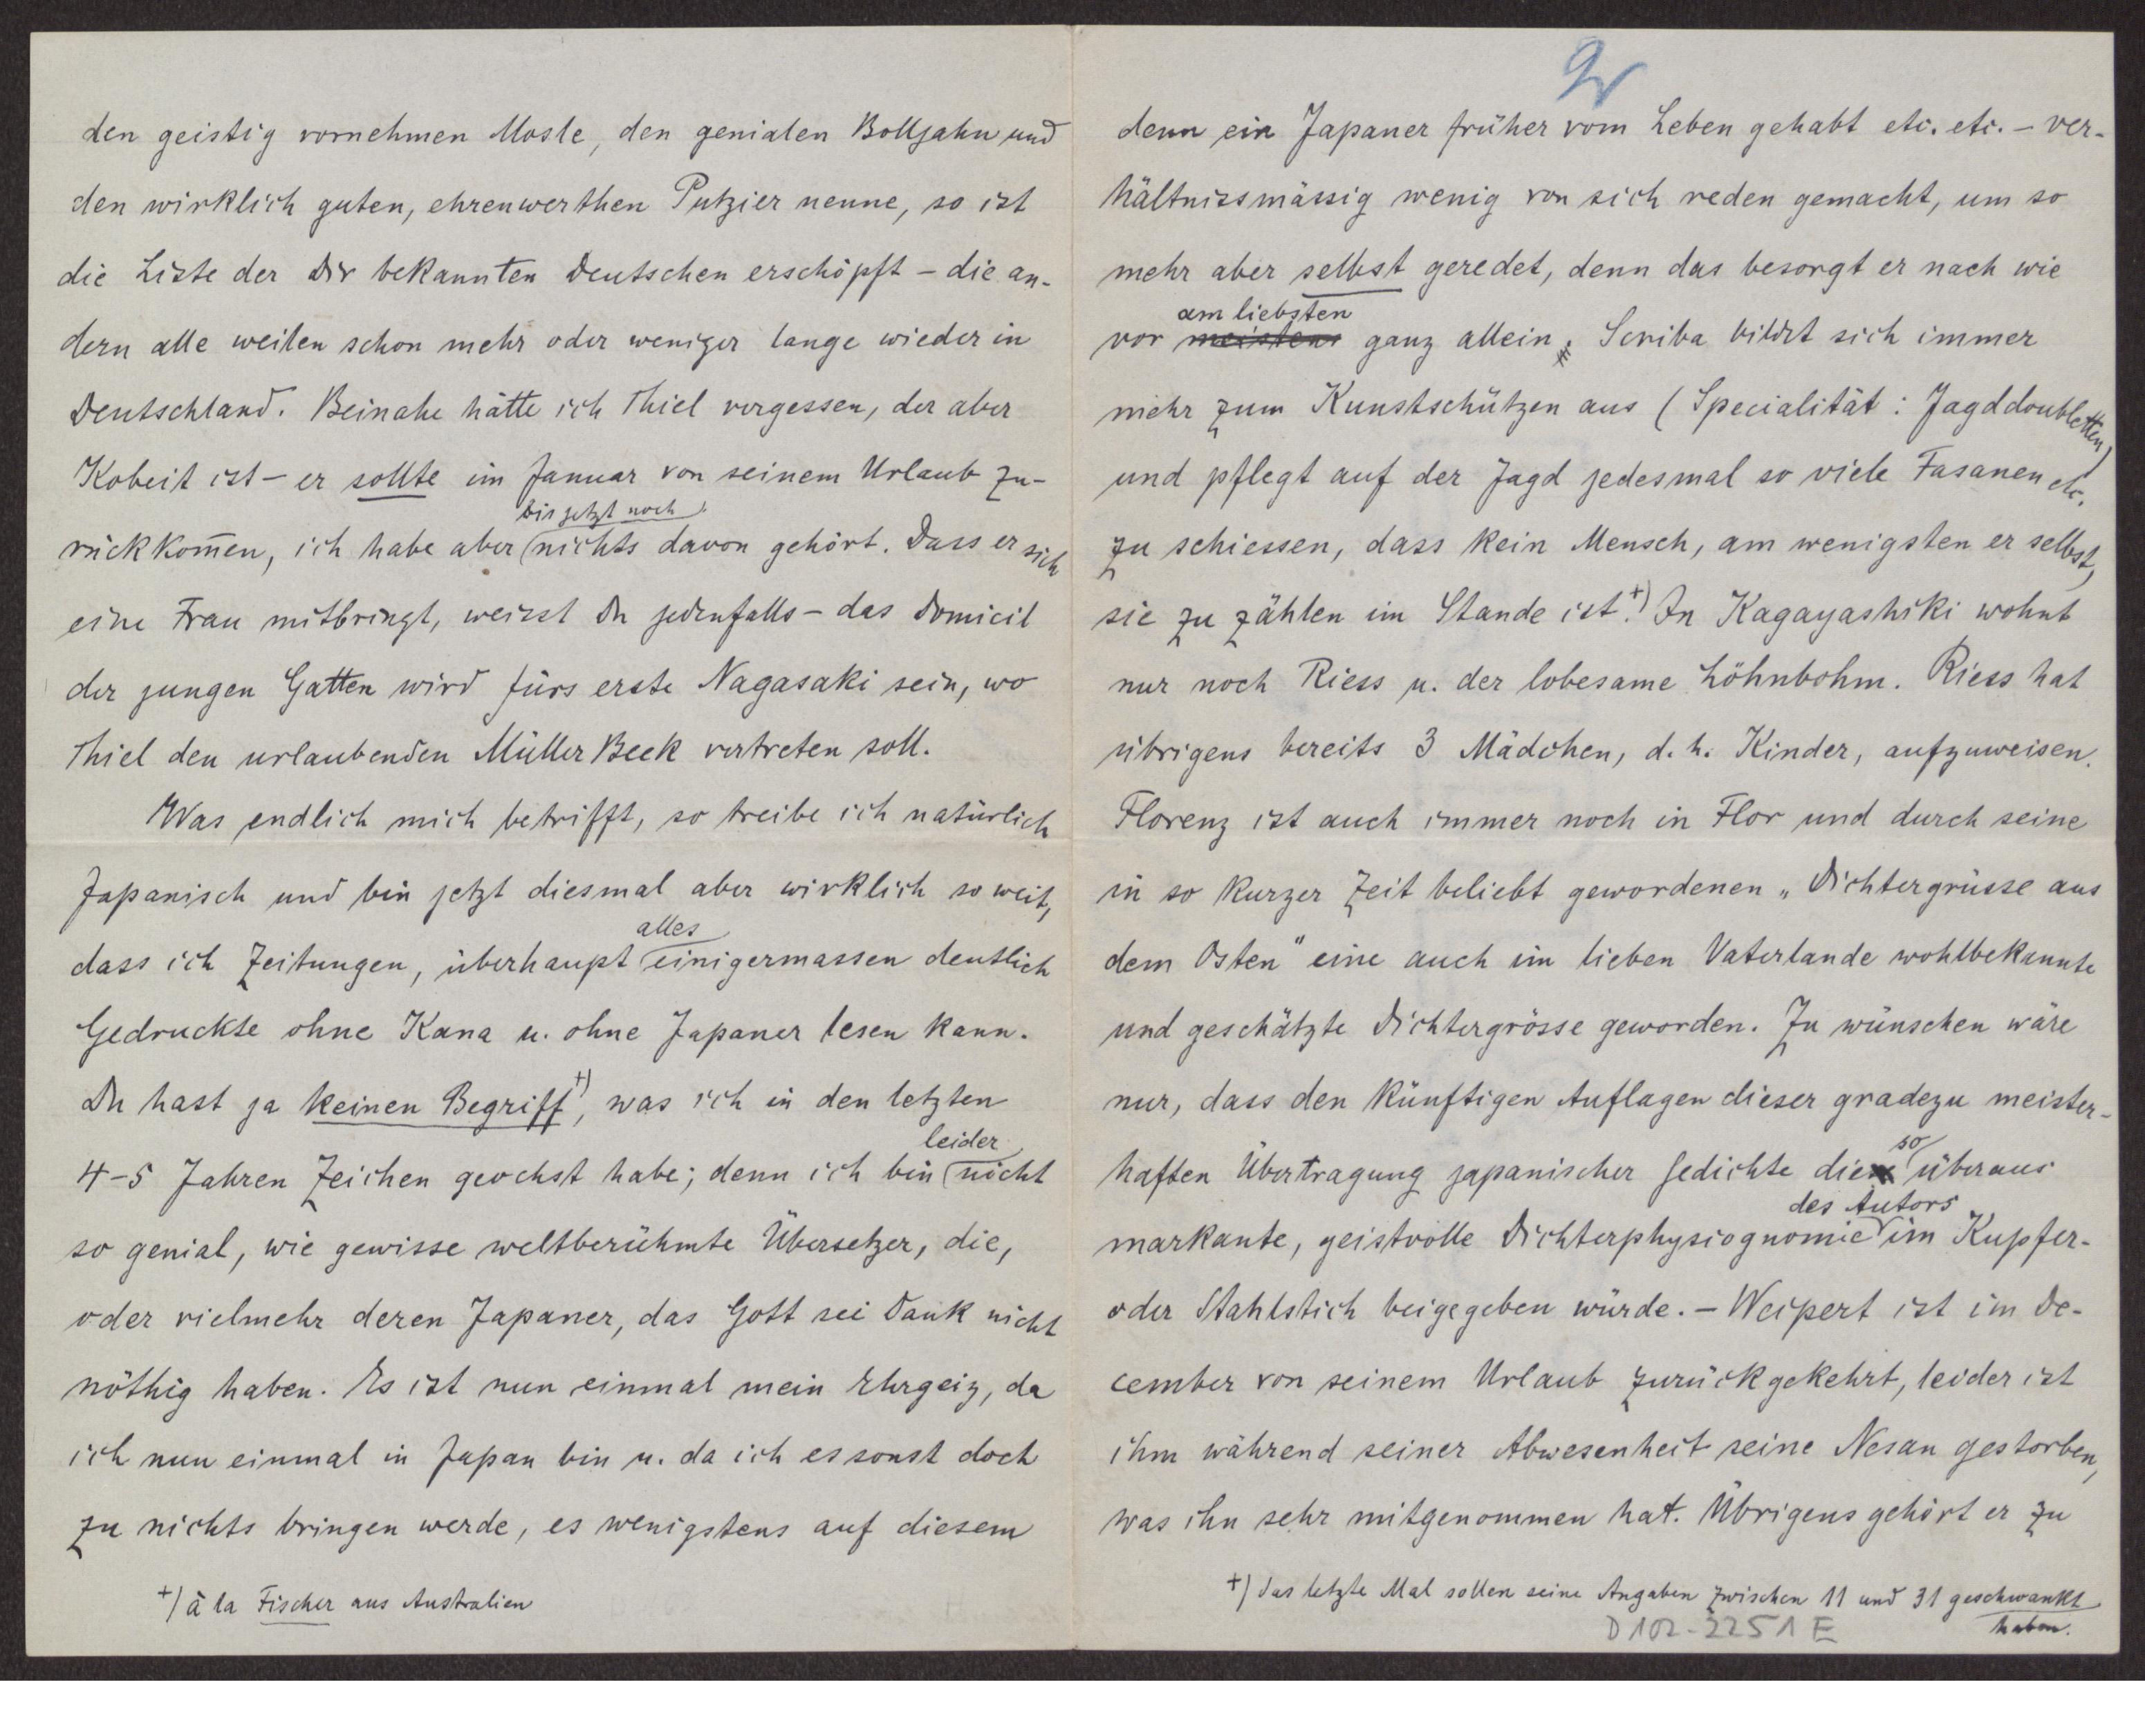 den geistig vornehmen Mosle, den genialen Bolljahn und
den wirklich guten, ehrenwerthen Putzier nenne, so ist
die Liste der Dir bekannten Deutschen erschöpft – die an-
dern alle weilen schon mehr oder weniger lange wieder in
Deutschland. Beinahe hätte ich Thiel vergessen, der aber
Kobeit ist – er sollte im Januar von seinem Urlaub zu-
bis jetzt noch
rückkom̄en, ich habe aber nichts davon gehört. Dass er sich
eine Frau mitbringt, weisst Du jedenfalls – das Domicil
der jungen Gatten wird fürs erste Nagasaki sein, wo
Thiel den urlaubenden Müller Beek vertreten soll.
Was endlich mich betrifft, so treibe ich natürlich
Japanisch und bin jetzt diesmal aber wirklich so weit,
alles
dass ich Zeitungen, überhaupt einigermassen deutlich
Gedruckte ohne Kana u. ohne Japaner lesen kann.
Du hast ja keinen Begriff +), was ich in den letzten
leider
4–5 Jahren Zeichen geochst habe; denn ich bin nicht
so genial, wie gewisse weltberühmte Übersetzer, die,
oder vielmehr deren Japaner, das Gott sei Dank nicht
nöthig haben. Es ist nun einmal mein Ehrgeiz, da
ich nun einmal in Japan bin u. da ich es sonst doch
zu nichts bringen werde, es wenigstens auf diesem
+) à la Fischer aus Australien
denn ein Japaner früher vom Leben gehabt etc. etc. – ver-
hältnissmässig wenig von sich reden gemacht, um so
mehr aber selbst geredet, denn das besorgt er nach wie
am liebsten
vor meistens ganz allein. Scriba bildet sich immer
mehr zum Kunstschützen aus (Specialität: Jagddoubletten)
und pflegt auf der Jagd jedesmal so viele Fasanen etc.
zu schiessen, dass kein Mensch, am wenigsten er selbst,
sie zu zählen im Stande ist. +) In Kagayashiki wohnt
nur noch Riess u. der lobesame Löhnbohm. Riess hat
übrigens bereits 3 Mädchen, d. h. Kinder, aufzuweisen.
Florenz ist auch immer noch in Flor und durch seine
in so kurzer Zeit beliebt gewordenen „Dichtergrüsse aus
dem Osten" eine auch im lieben Vaterlande wohlbekannte
und geschätzte Dichtergrösse geworden. Zu wünschen wäre
nur, dass den künftigen Auflagen dieser gradezu meister-
so
haften Übertragung japanischer Gedichte die überaus
des Autors
markante, geistvolle Dichterphysiognomie im Kupfer-
oder Stahlstich beigegeben würde. – Weipert ist im De-
cember von seinem Urlaub zurückgekehrt, leider ist
ihm während seiner Abwesenheit seine Nesan gestorben,
was ihn sehr mitgenommen hat. Übrigens gehört er zu
+) das letzte Mal sollen seine Angaben zwischen 11 und 31 geschwankt
haben.
D 102-2251 E